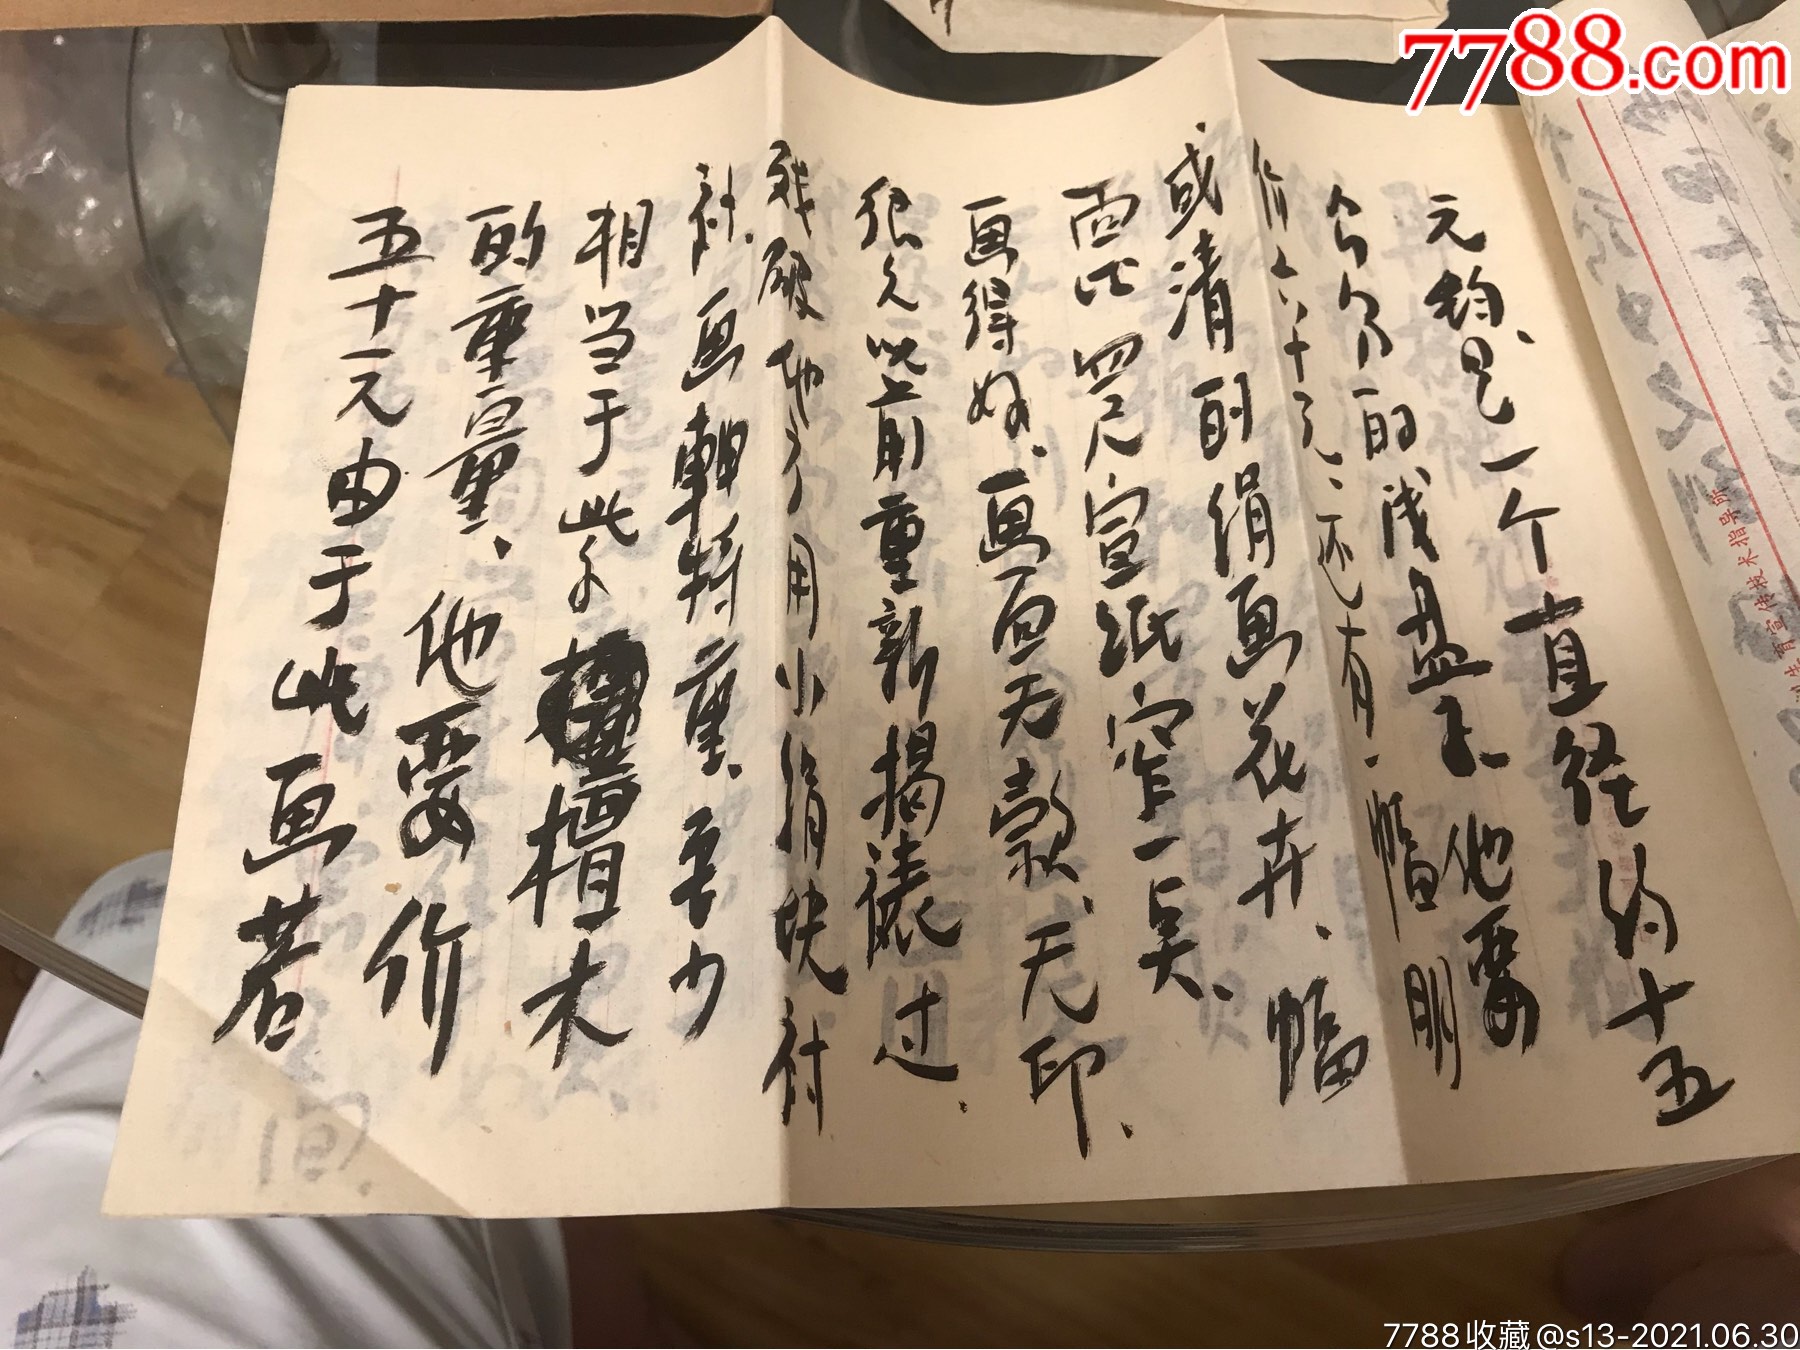 元钧、是一个直径约十五
公分的浅盘子、他要
价六十元、还有一幅明
或清的绢画花卉、幅
面比四尺宣纸窄一点、
画得好、画面无款、无印、
很久以前重新揭裱过、
残破地方用小绢块衬
衬、画轴特重、至少
相当于紫檀木
的重量、他要价
五十元由于此画若
7788.com
7788收藏@s13-2021.06.30